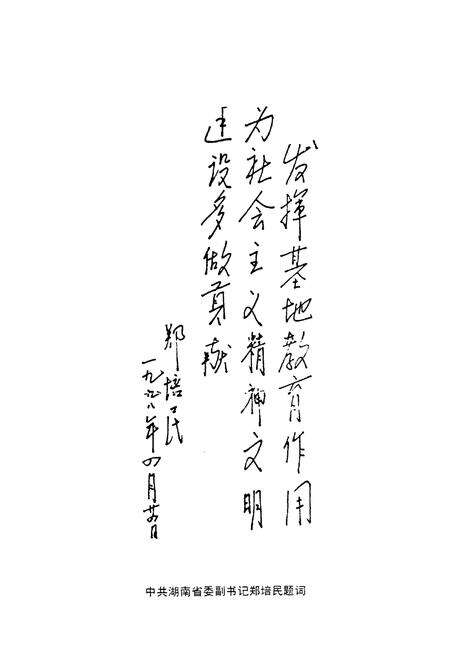 发揮基地教育作用
为社会主义精神文明
建设多做貢献
郑培民
一九九八年四月廿日
中共湖南省委副书记郑培民题词